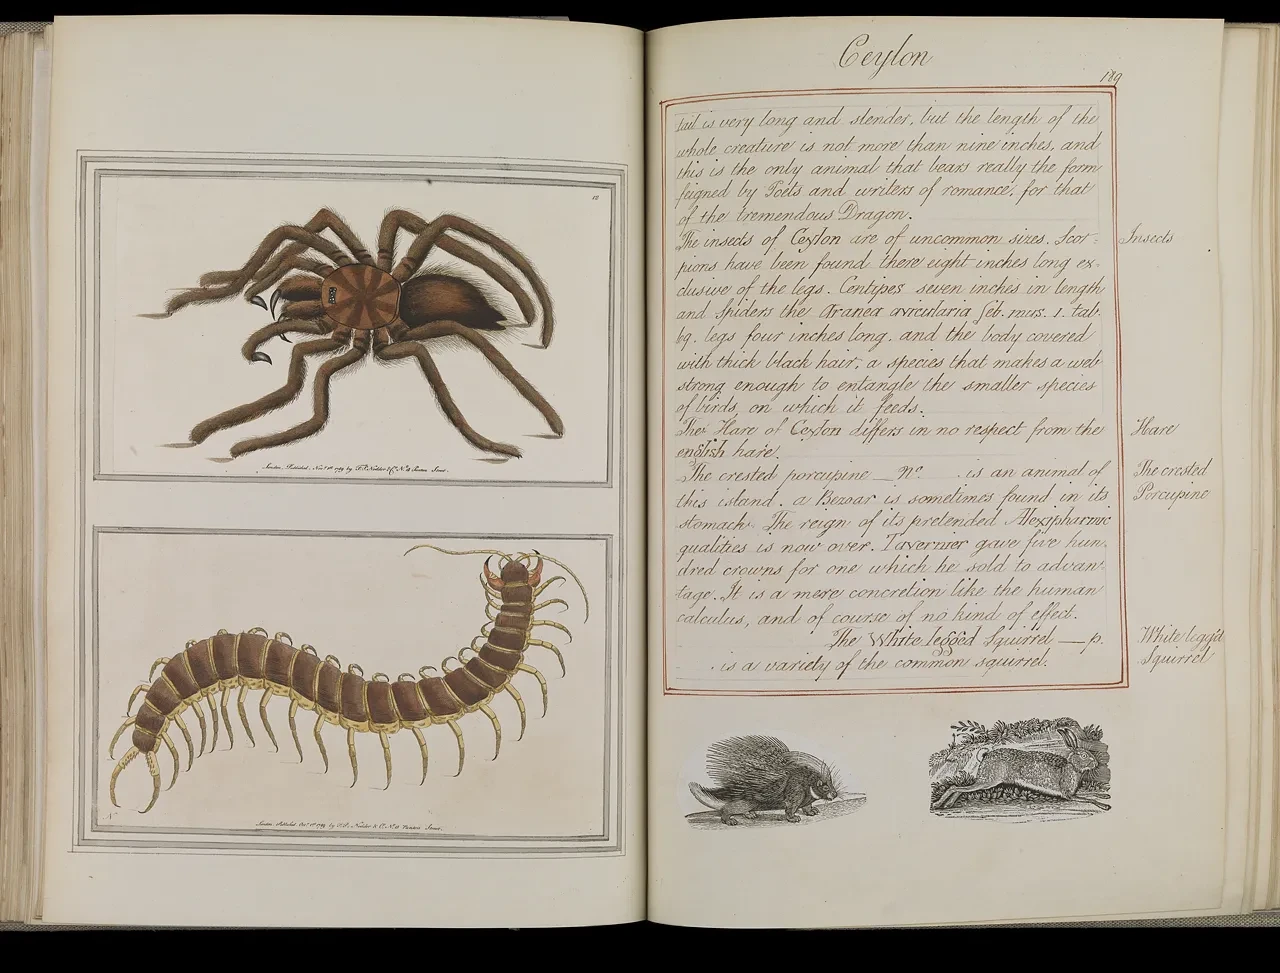 10
London, Published, Nov.r 1st 1789 by F. P. Nodder & Co. No. 15 Brewer Street.
London, Published, Oct.r 1st 1789 by F. P. Nodder & Co. No. 15 Brewer Street.
Ceylon
189
tail is very long and slender, but the length of the
whole creature is not more than nine inches, and
this is the only animal that bears really the form
feigned by Poets and writers of romance, for that
of the tremendous Dragon.
The insects of Ceylon are of uncommon sizes. Scor-
Insects
pions have been found there eight inches long ex-
clusive of the legs. Centypes seven inches in length
and spiders the Aranea avicularia Seb. mus. 1. tab.
69. legs four inches long. and the body covered
with thick black hair, a species that makes a web
strong enough to entangle the smaller species
of birds, on which it feeds.
The Hare of Ceylon differs in no respect from the
Hare
english hare.
The crested porcupine _ No. is an animal of
The crested
this island. a Bezoar is sometimes found in its
Porcupine
stomach. The reign of its pretended Alexipharmic
qualities is now over. Tavernier gave five hun-
dred crowns for one which he sold to advan-
tage. It is a mere concretion like the human
calculus, and of course of no kind of effect.
The White legged Squirrel — p.
White legg'd
. is a variety of the common squirrel.
Squirrel